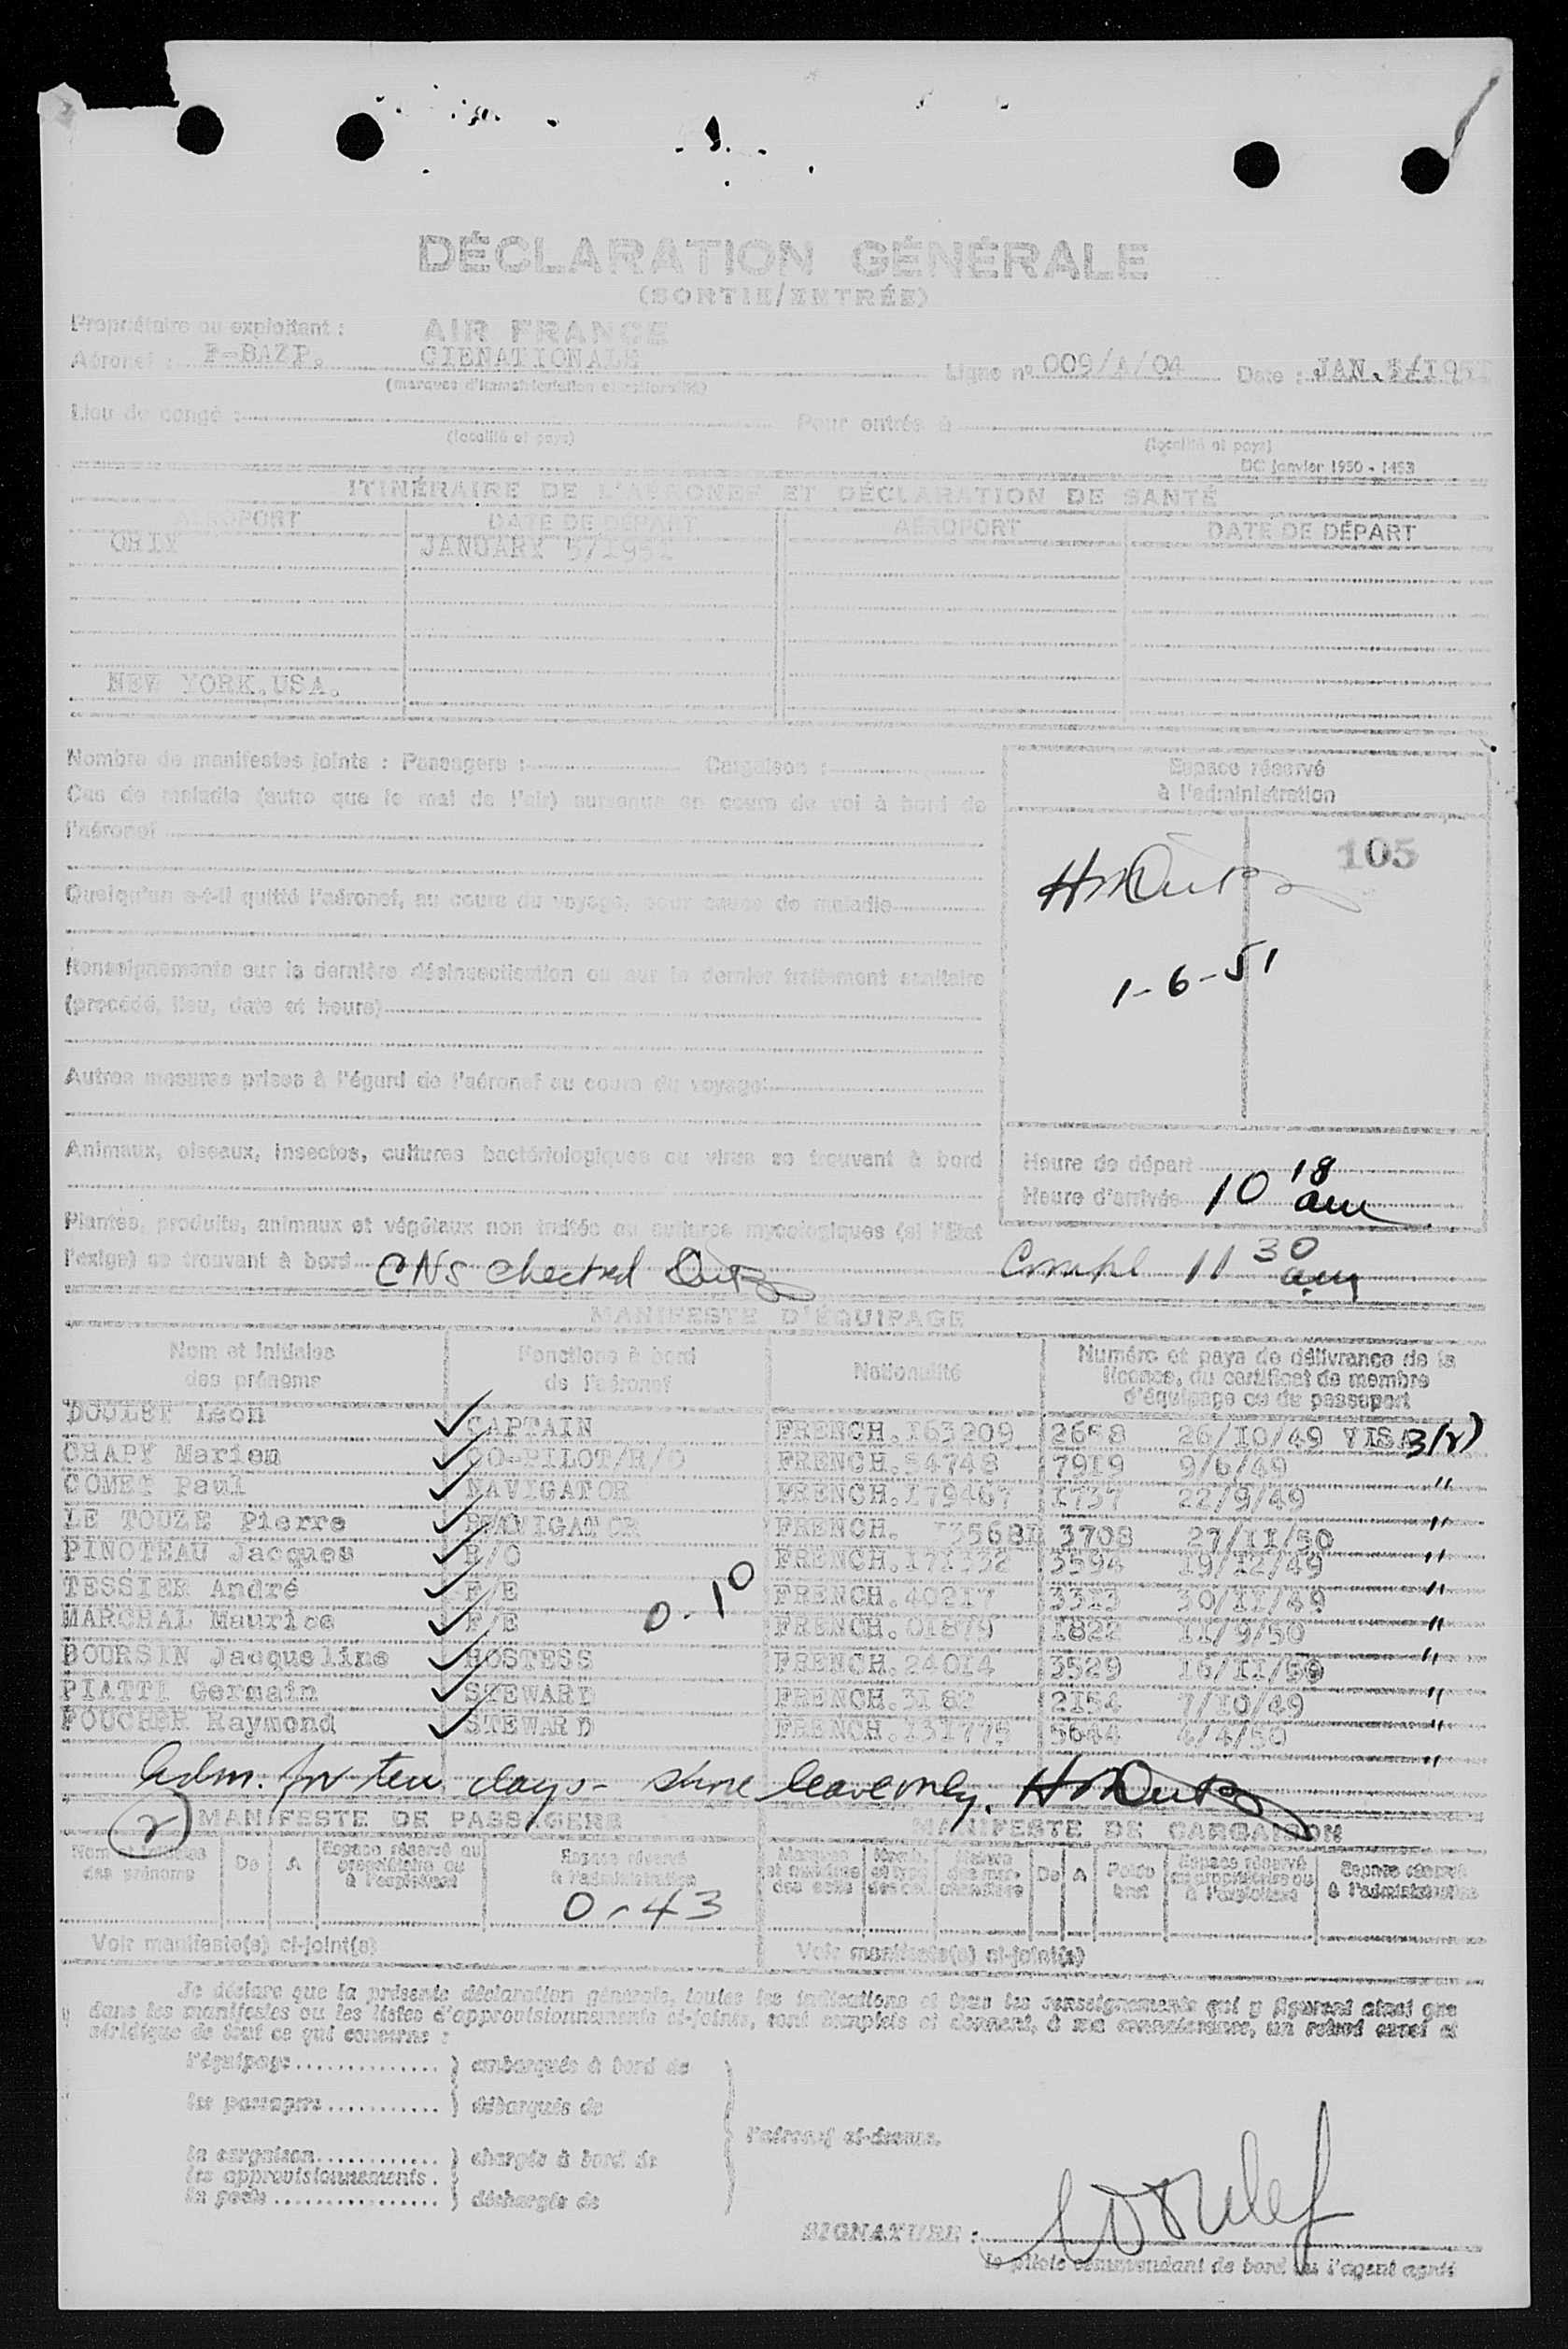 DÉCLARATION GÉNÉRALE
(SORTIE/ENTRÉE)
Propriétaire ou exploitant : AIR FRANCE
Aéronef : F-BAZP. CIENATIONALE Ligne nº 009/A/04 Date : JAN. 5/1951
(marques d'immatriculation et nationalité)
Lieu de congé : Pour entrée à
(localité et pays) (localité et pays)
DC janvier 1950 - 1453
ITINÉRAIRE DE L'AÉRONEF ET DÉCLARATION DE SANTÉ
AÉROPORT DATE DE DÉPART AÉROPORT DATE DE DÉPART
ORLY JANUARY 5/1951
NEW YORK.USA.
Nombre de manifestes joints : Passagers : Cargaison :
Espace réservé
à l'administration
Cas de maladie (autre que le mal de l'air) survenue en cours de vol à bord de
l'aéronef
105
Quelqu'un a-t-il quitté l'aéronef, au cours du voyage, pour cause de maladie
1-6-51
Renseignements sur la dernière désinsectisation ou sur le dernier traitement sanitaire
(procédé, lieu, date et heure)
Autres mesures prises à l'égard de l'aéronef au cours du voyage
Animaux, oiseaux, insectes, cultures bactériologiques ou virus se trouvant à bord
Heure de départ
Heure d'arrivée 10 18 am
Plantes, produits, animaux et végétaux non traités ou cultures mycologiques (si l'État
l'exige) se trouvant à bord CNS checked Compl 11 30 am
MANIFESTE D'ÉQUIPAGE
Nom et initiales des prénoms Fonctions à bord de l'aéronef Nationalité Numéro et pays de délivrance de la licence, du certificat de membre d'équipage ou du passeport
BOULET Leon ✓ CAPTAIN FRENCH.163209 2658 26/10/49 VISA 3(2)
CHAPY Marien ✓ CO-PILOT/R/O FRENCH.54748 7919 9/6/49 "
COMET Paul ✓ NAVIGATOR FRENCH.179467 1737 22/9/49 "
LE TOUZE Pierre ✓ NAVIGATOR FRENCH. 3708 27/11/50 "
PINOTEAU Jacques ✓ R/O FRENCH.171332 3594 19/12/49 "
TESSIER André ✓ F/E FRENCH.40217 3313 30/11/49 "
MARCHAL Maurice ✓ F/E 0-10 FRENCH.01879 1822 11/9/50 "
BOURSIN Jacqueline ✓ HOSTESS FRENCH.24014 3529 16/11/50 "
PIATTI Germain ✓ STEWARD FRENCH. 2154 7/10/49 "
FOUCHER Raymond ✓ STEWARD FRENCH.131775 5644 4/4/50 "
Adm. for ten days - shore leave only.
2) MANIFESTE DE PASSAGERS MANIFESTE DE CARGAISON
Nom et initiales des prénoms De A Espace réservé au propriétaire ou à l'exploitant Espace réservé à l'administration De A Poids brut Espace réservé au propriétaire ou à l'exploitant Espace réservé à l'administration
0-43
Voir manifeste(s) ci-joint(s) Voir manifeste(s) ci-joint(s)
Je déclare que la présente déclaration générale, toutes les indications et tous les renseignements qui y figurent ainsi que
dans les manifestes ou les listes d'approvisionnements ci-joints, sont complets et donnent, à ma connaissance, un relevé exact et
véridique de tout ce qui concerne :
l'équipage ) embarqués à bord de
les passagers ) débarqués de
l'aéronef ci-dessus.
la cargaison ) chargés à bord de
les approvisionnements
la poste ) déchargés de
SIGNATURE :
Le pilote commandant de bord ou l'agent agréé